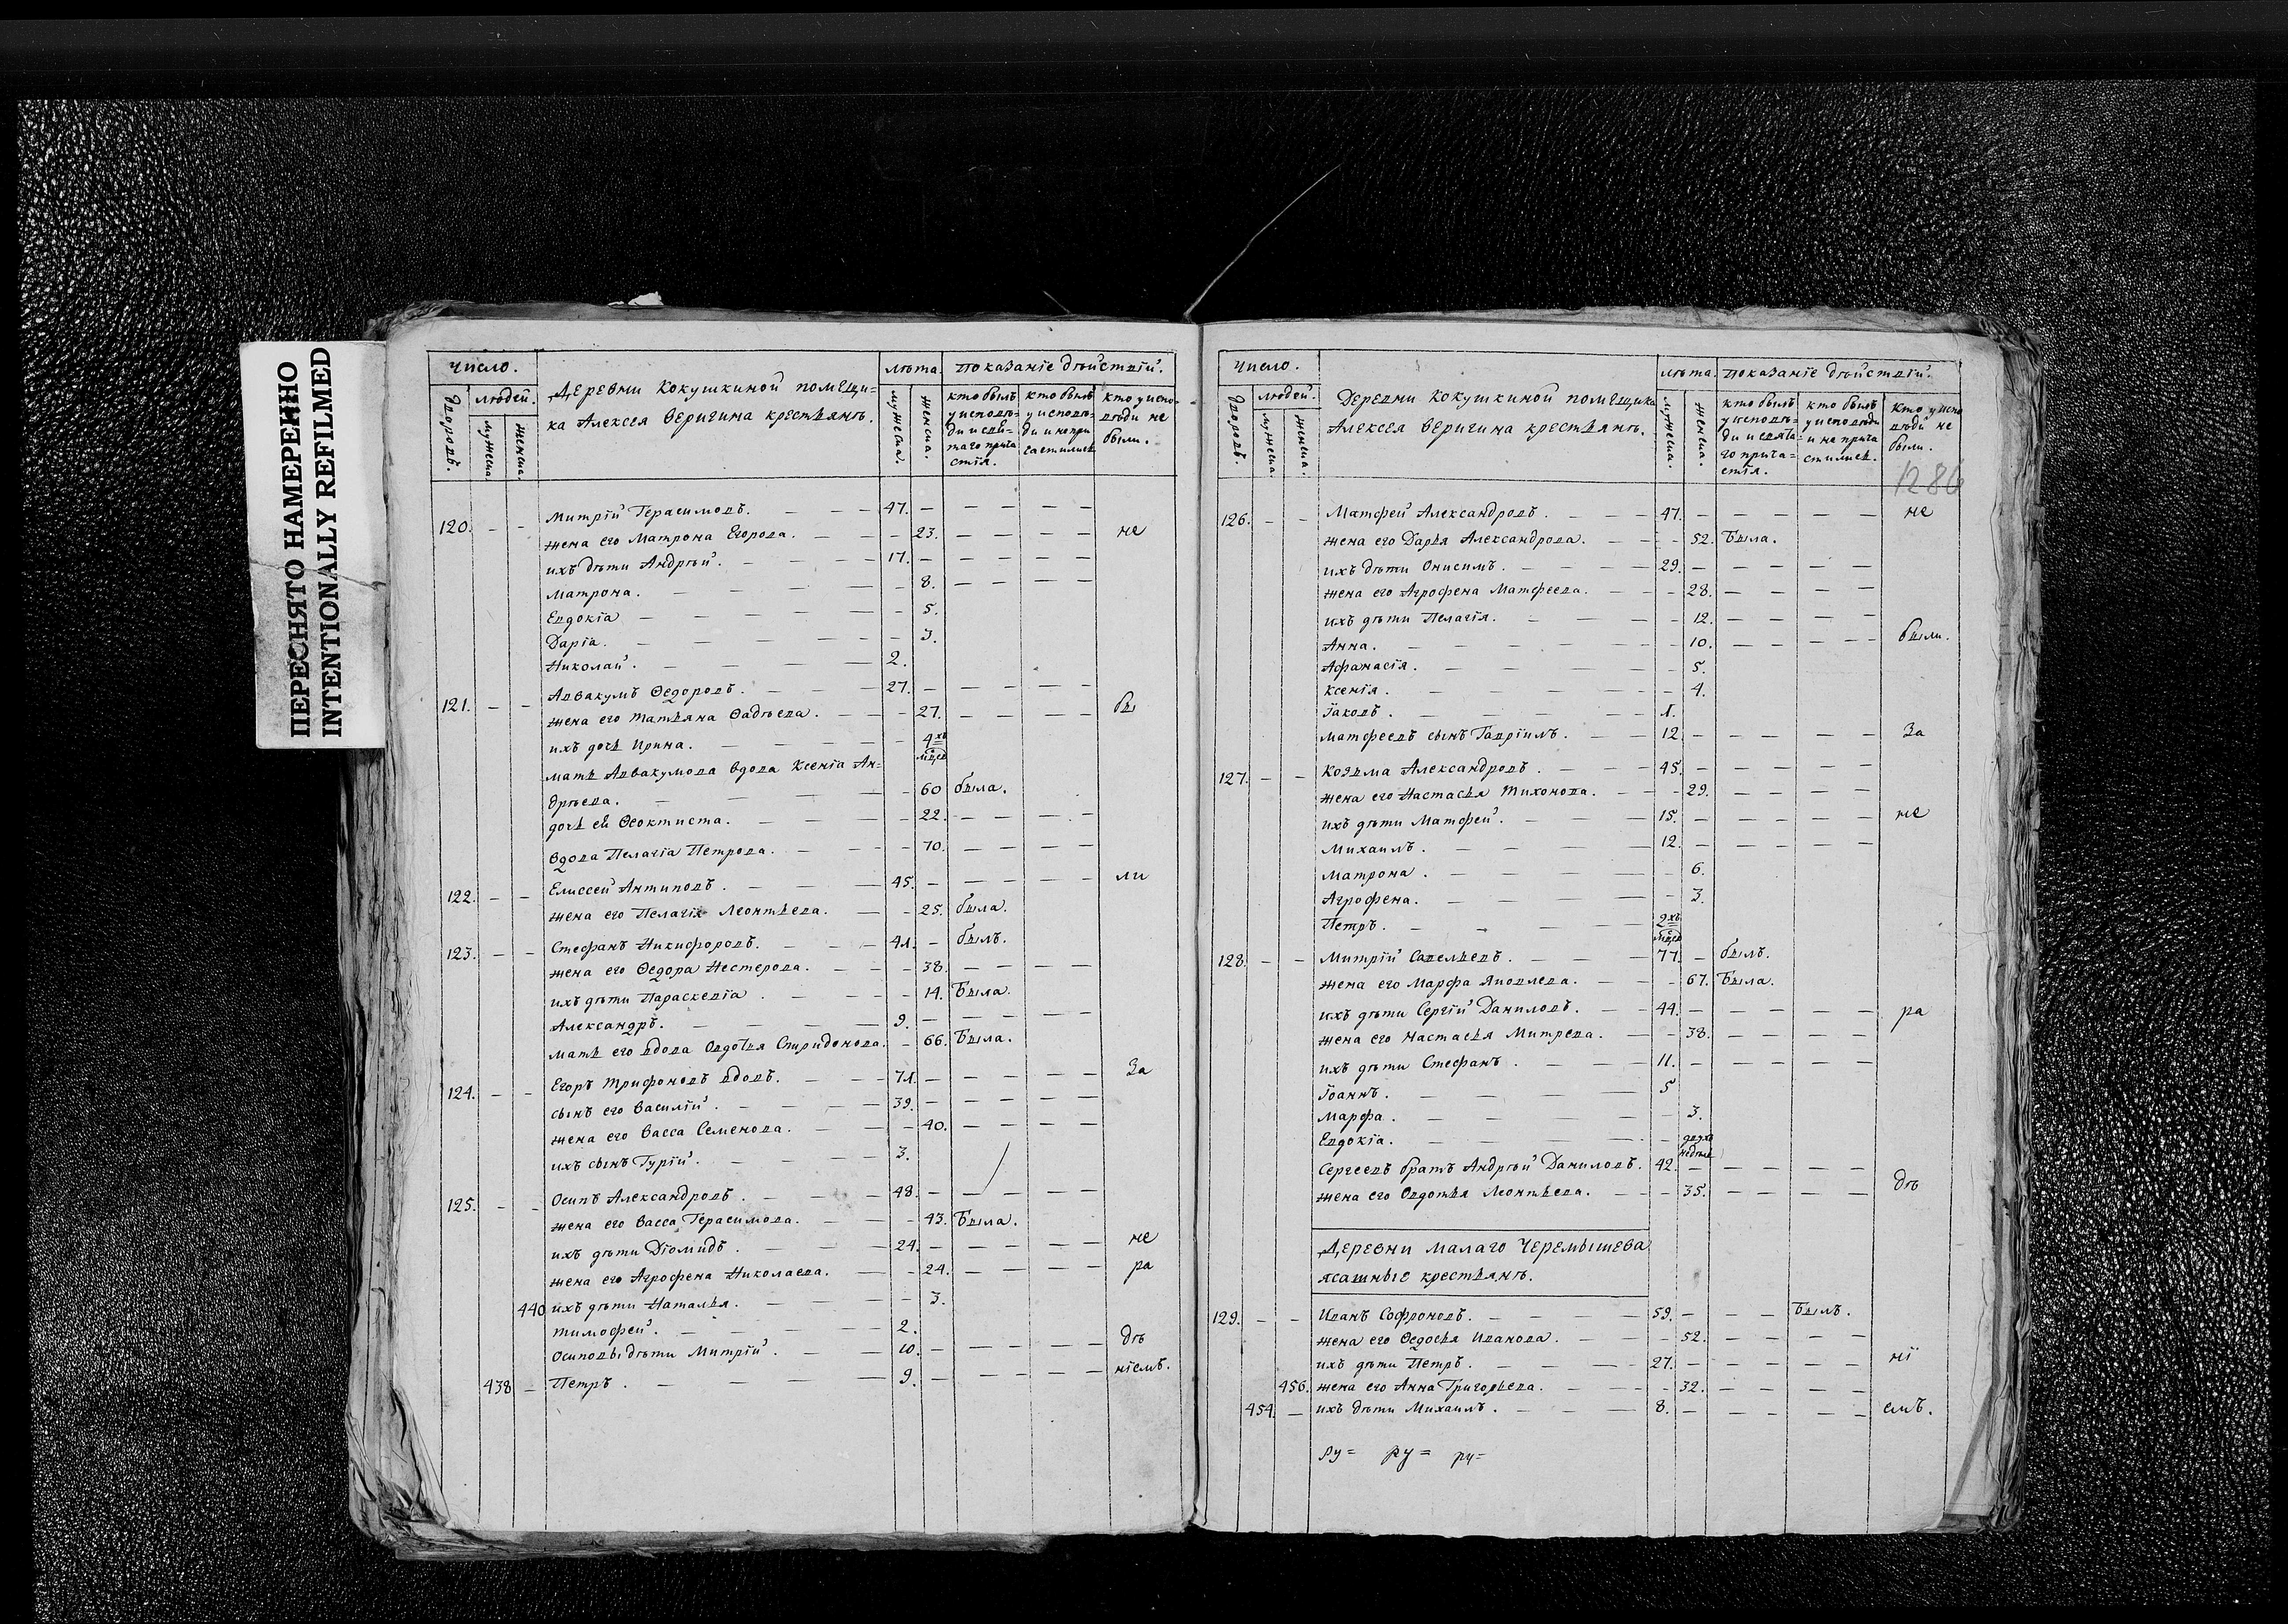 ПЕРЕСНЯТО НАМЕРЕННО
INTENTIONALLY REFILMED
число.
дворовъ.
людей.
мужеска.
женска.
Деревни Кокушкиной помѣщи=
ка Алексея Веригина крестьянъ.
лѣта.
мужеска.
женска.
показаніе дѣйствій.
кто былъ у исповѣ= ди и свя= таго прича стія.
кто былъ у исповѣ= ди и непри частился
кто у испо= вѣди не были.
120. – – Митрій Герасимовъ. – – – 47. – – – – –
жена его Матрона Егорова. – – – 23. – – – – не
ихъ дѣти Андрѣй. – – – 17. – – – – –
Матрона. – – – 8. – – – –
Евдокіа – – – – 5.
Даріа. – – – – 3.
Николай. – – – 2.
121. – – Аввакумъ Ѳедоровъ. – – – 27. – – – – –
жена его Татьяна Ѳадѣева. – – – 27. – – – – бы
ихъ дочь Ирина. – – – 4хъ мцов
мать Аввакумова вдова Ксеніа Ан=
дрѣева. – – – – 60 была.
дочь ей Ѳеоктиста. – – – 22. – – – –
вдова Пелагіа Петрова. – – – 70. – – – –
122. – – Елисей Антиповъ. – – – 45. – – – – – ли
жена его Пелагія Леонтьева. – – 25. была.
123. – – Стефанъ Никифоровъ. – – – 41. – былъ.
жена его Ѳедора Нестерова. – – – 38. – – – –
ихъ дѣти Параскевіа. – – – 14. Была.
Александръ. – – – – 9. – – – – –
мать его вдова Овдотья Спиридонова. – 66. Была.
124. – – Егоръ Трифоновъ вдовъ. – – – 71. – – – – – За
сынъ его Василій. – – – 39. – – – – –
жена его Васса Семенова. – – – 40. – – – –
ихъ сынъ Гурій. – – – 3.
125. – – Осипъ Александровъ. – – – 48. – – – – –
жена его Васса Герасимова. – – – 43. Была.
ихъ дѣти Діомидъ. – – – 24. – – – – – не
жена его Агрофена Николаева. – – 24. – – – – ра
440 ихъ дѣти Наталья. – – – 3.
Тимофей. – – – – 2.
Осиповы дѣти Митрій. – – 10. – – – – – дѣ
438 – Петръ. – – – – 9. – – – – – ніемъ.
число.
дворовъ.
людей.
мужеска.
женска.
Деревни Кокушкиной помѣщика
Алексея Веригина крестьянъ.
лѣта.
мужеска.
женска.
показаніе дѣйствій.
кто былъ у исповѣ= ди и свята= го прича= стія.
кто былъ у исповѣди и не прича стился.
кто у испо вѣди не были.
1286
126. – – Матфей Александровъ. – – – 47. – – – – – не
жена его Дарья Александрова. – – – 52. Была.
ихъ дѣти Онисимъ. – – – 29. – – – – –
жена его Агрофена Матфеева. – – – 28. – – – –
ихъ дѣти Пелагія. – – – 12. – – – –
Анна. – – – – 10. – – – – были.
Афанасія. – – – – 5.
Ксенія. – – – – 4.
Іаковъ. – – – – 1.
Матфеевъ сынъ Гавріилъ. – – 12 – – – – – За
127. – – Козьма Александровъ. – – – 45. – – – – –
жена его Настасья Тихонова. – – – 29. – – – –
ихъ дѣти Матфей. – – – 15. – – – – – не
Михаилъ. – – – – 12. – – – – –
Матрона. – – – – 6.
Агрофена. – – – – 3.
Петръ. – – – – 2хъ мцов
128. – – Митрій Савельевъ. – – – 77. – былъ.
жена его Марфа Яковлева. – – – 67. Была.
ихъ дѣти Сергій Даниловъ. – – 44. – – – – – ра
жена его Настасья Митрева. – – – 38. – – – –
ихъ дѣти Стефанъ. – – – 11. – – – – –
Іоаннъ. – – – – 5
Марфа. – – – – 3.
Евдокіа. – – – – двухъ недѣль
Сергеевъ братъ Андрѣй Даниловъ. 42. – – – – –
жена его Овдотья Леонтьева. – – – 35. – – – – дѣ
Деревни Малаго Черемышева
ясашные крестьянъ.
129. – – Иванъ Софроновъ. – – – 59. – – – Былъ.
жена его Ѳедосья Иванова. – – – 52. – – – –
ихъ дѣти Петръ. – – – 27. – – – – – ні
456. жена его Анна Григорьева. – – – 32. – – – –
454. – ихъ дѣти Михаилъ. – – – 8. – – – – – емъ.
ру= ру= ру=